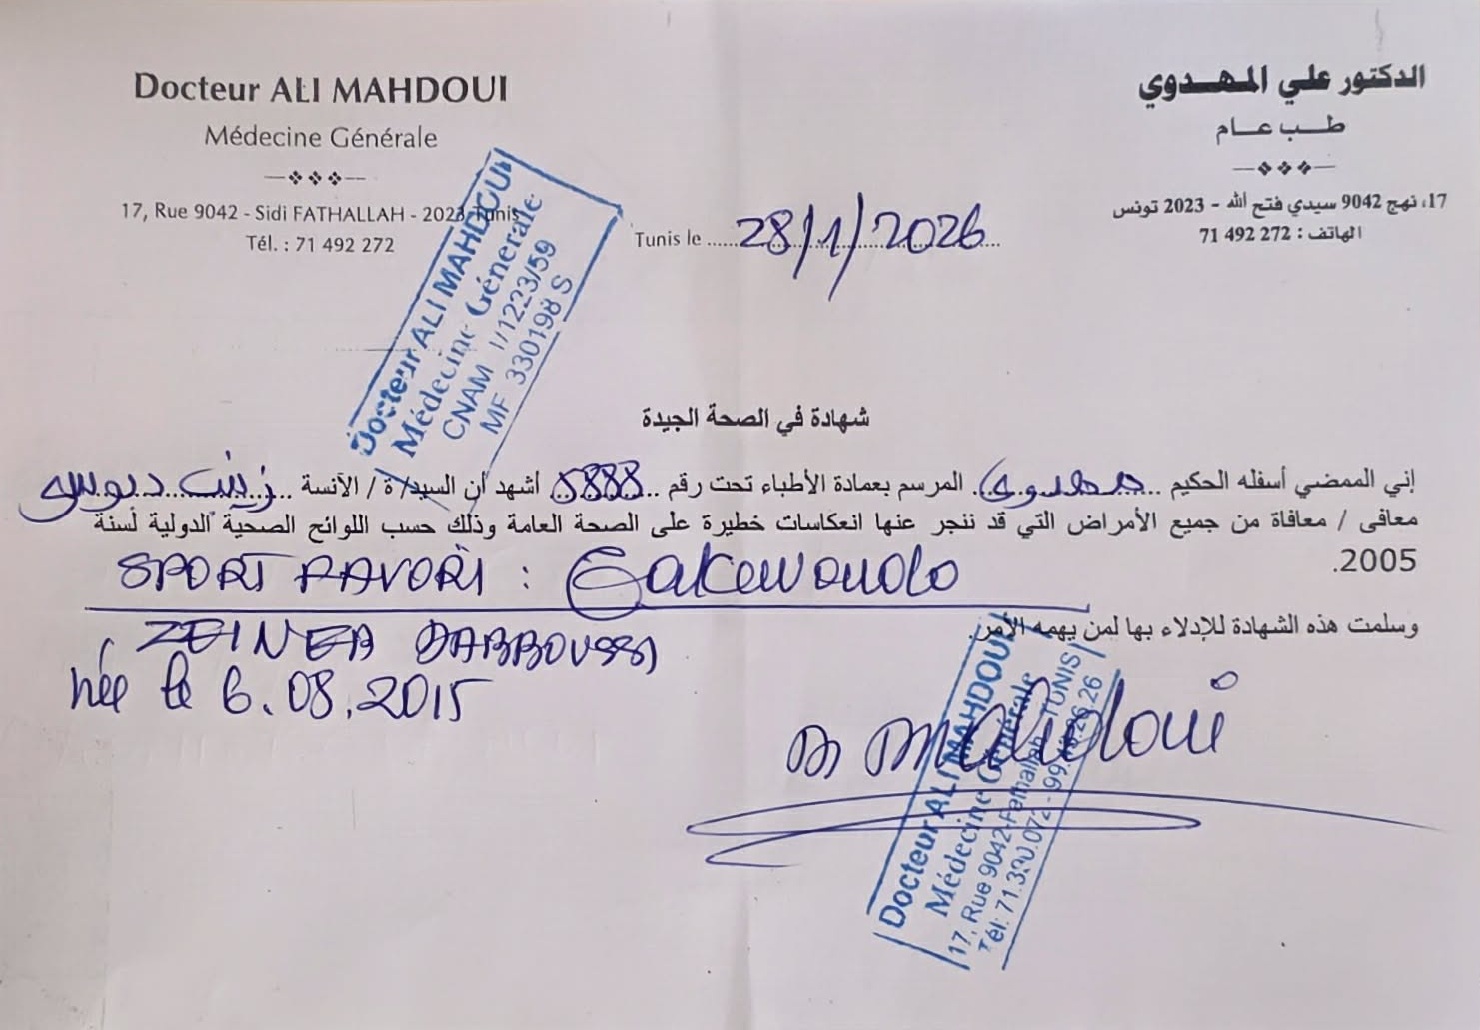 Docteur ALI MAHDOUI
Médecine Générale
17, Rue 9042 - Sidi FATHALLAH - 2023 Tunis
Tél. : 71 492 272
الدكتور علي المهدوي
طب عام
17، نهج 9042 سيدي فتح الله - 2023 تونس
الهاتف : 272 492 71
Tunis le ...... 28/1/2026
Docteur ALI MAHDOUI
Médecine Génerale
CNAM 1/1223/59
MF 330198 S
شهادة في الصحة الجيدة
إني الممضي أسفله الحكيم ... مهدوي ... المرسم بعمادة الأطباء تحت رقم ... 5888 أشهد أن السيد/ ة / الآنسة ... زينب دبوسي
معافى / معافاة من جميع الأمراض التي قد ننجر عنها انعكاسات خطيرة على الصحة العامة وذلك حسب اللوائح الصحية الدولية لسنة
2005.
SPORT FAVORI :
وسلمت هذه الشهادة للإدلاء بها لمن يهمه الأمر.
ZEINEB DABBOUSSI
née le 6.08.2015
Mahdoui
Docteur ALI MAHDOUI
Médecine Générale
17, Rue 9042-Fathallah-TUNIS
Tél: 71.390.072 - 99.
26.26